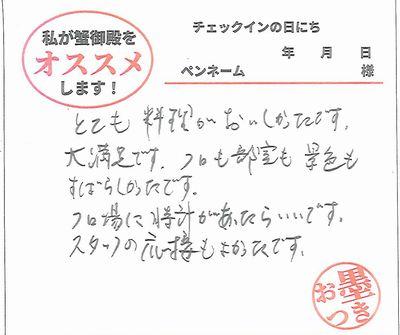 私が蟹御殿を
オススメ
します！
チェックインの日にち
年 月 日
ペンネーム 様
とても料理がおいしかたです。
大満足です。フロも部室も景色も
すばらしかたです。
フロ場に時計があたらいいです。
スタッフの応接もよかたです。
墨
おつき